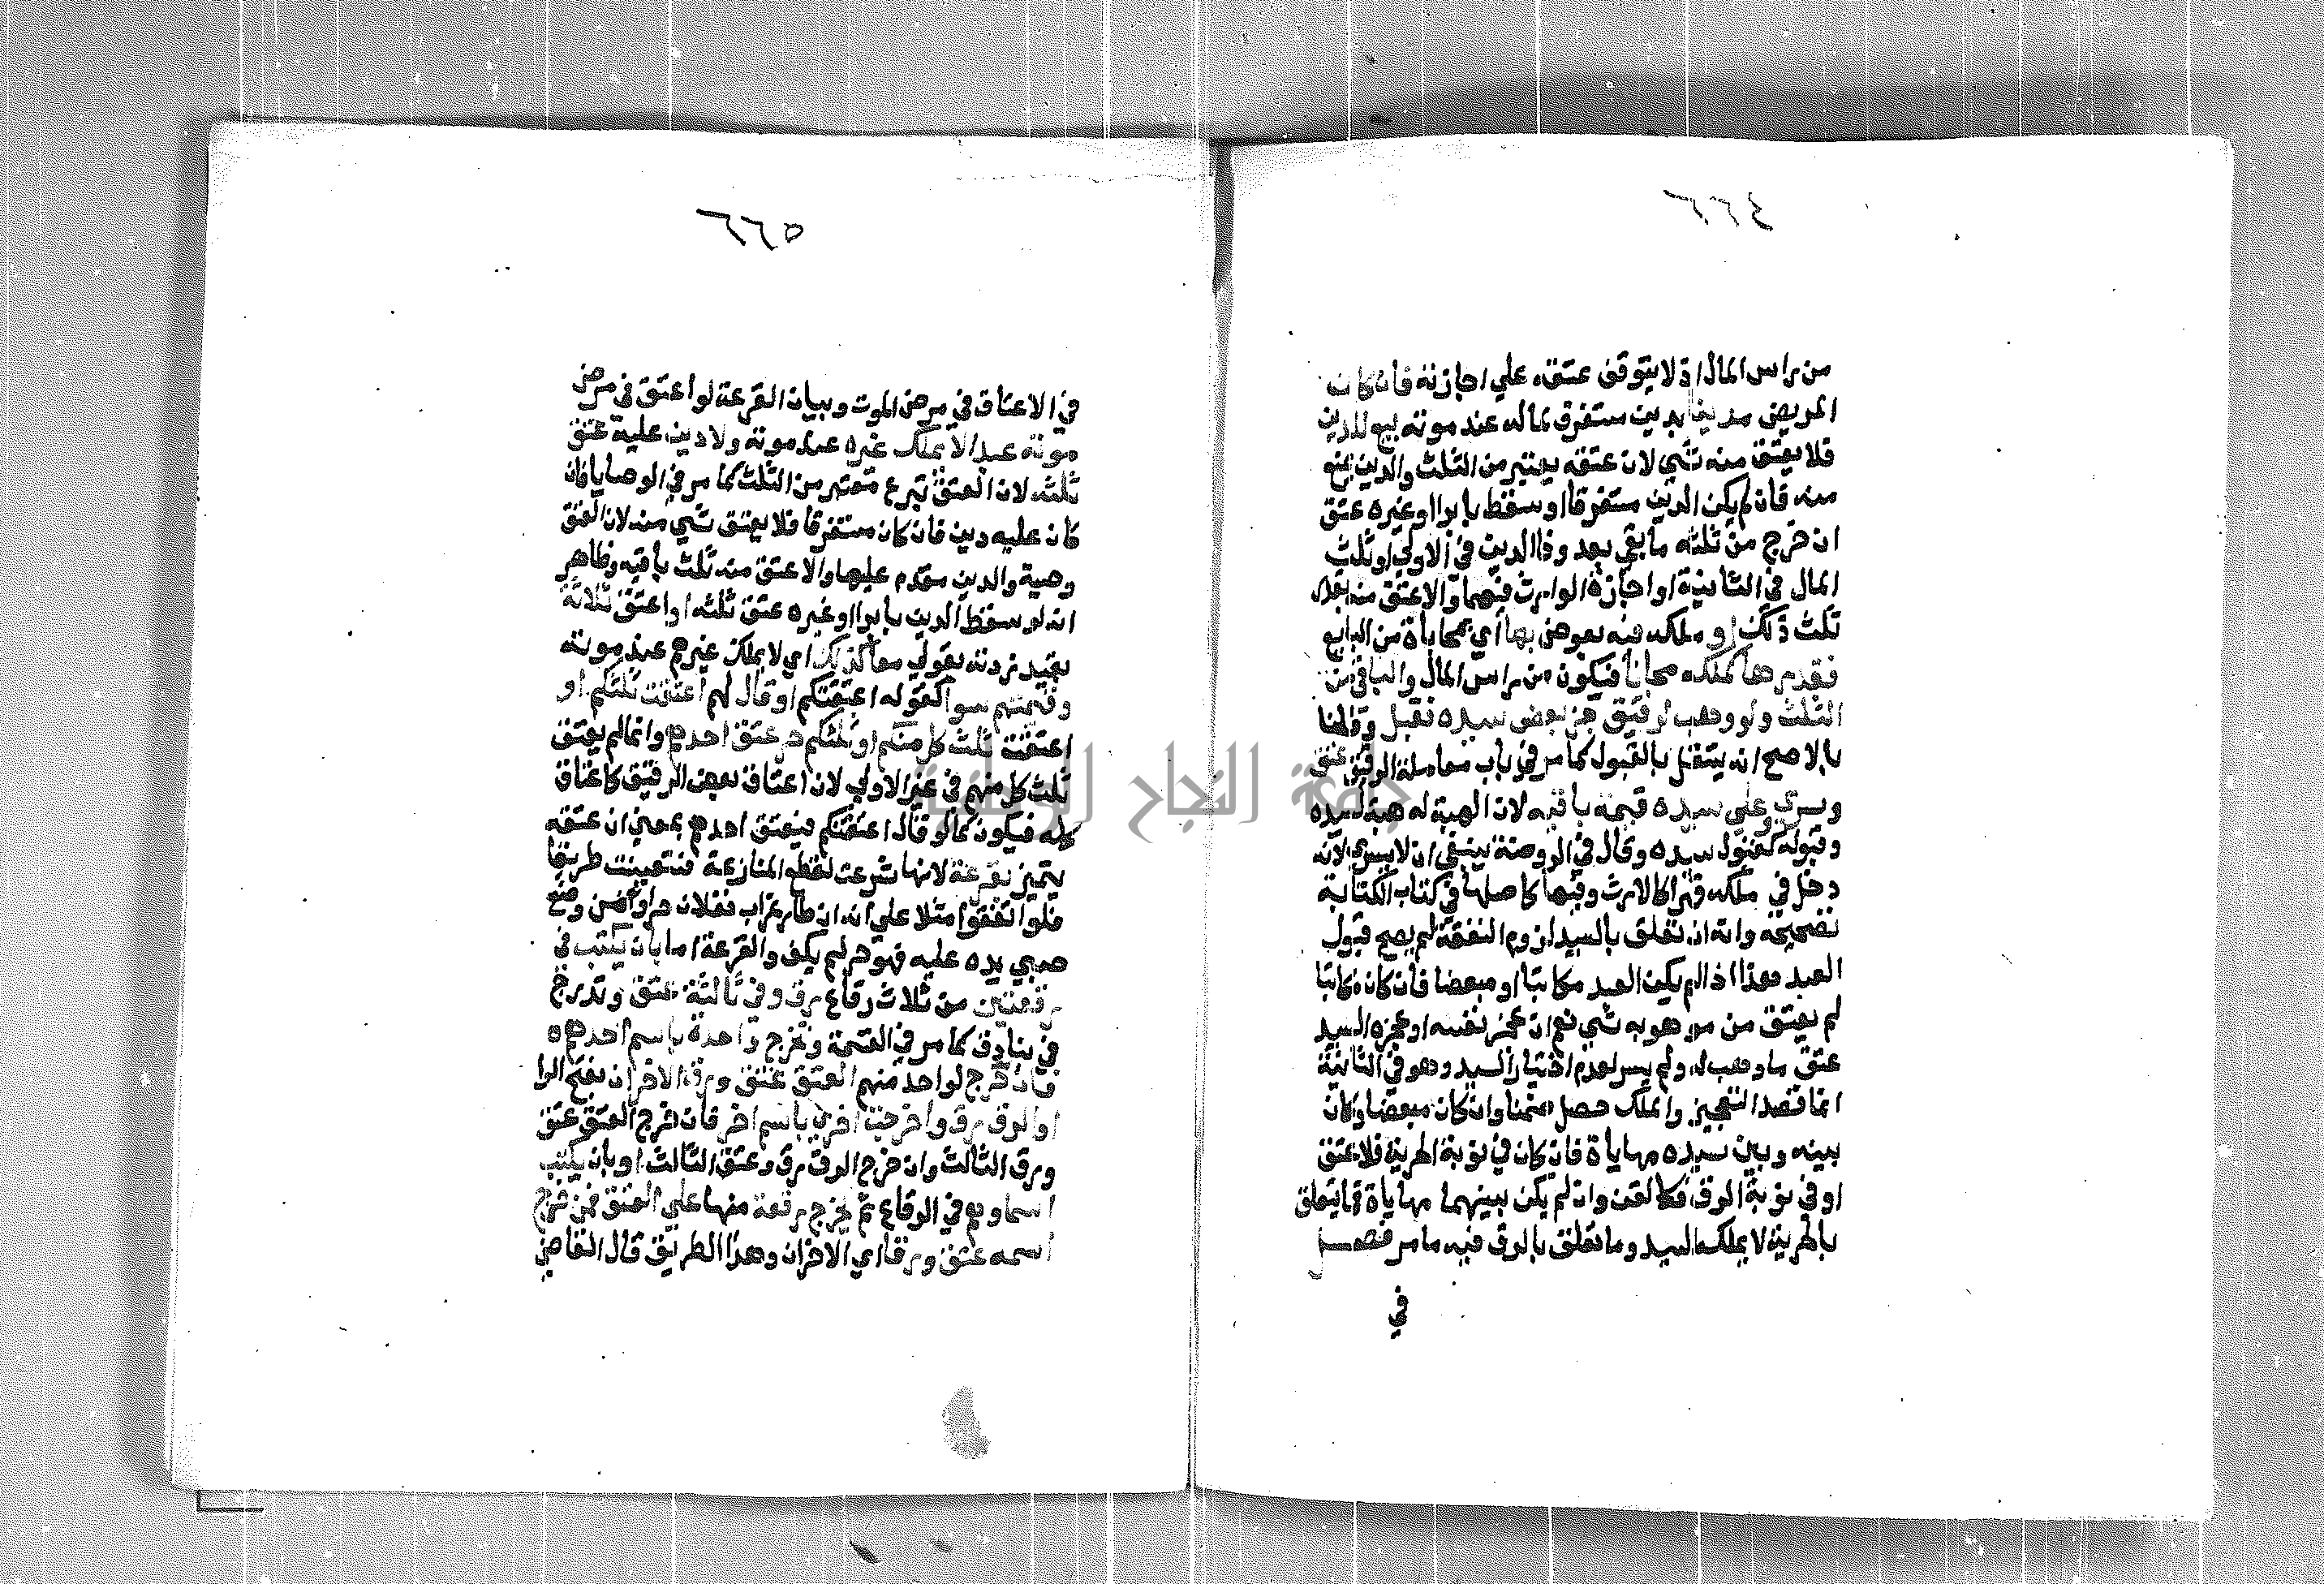 ٦٦٤
من راس المال اذ لا يتوقف عتقه علي اجازته فان كان
المريض مدينا بدين مستغرق لماله عند موته بيع للدين
فلا يعتق منه شي لان عتقه يعتبر من الثلث والدين يمنع
منه فان لم يكن الدين مستغرقا او سقط بابرا او غيره عتق
ان خرج من ثلثه ما بقي بعد وفا الدين في الاولي او ثلث
المال في الثانية او اجازة الوارث فيهما والا عتق منه بقدر
ثلث ذلك او ملكه فيه بعوض بها اي بمحاباة من البايع
فقدرها كملكه مجانا فيكون من راس المال والباقي من
الثلث ولو وهب لرقيق جز بعض سيده فقبل وقلنا
بالاصح انه يستقل بالقبول كما مر في باب معاملة الرقيق عتق
وسري وعلي سيده قيمة باقيه لان الهبة له هبة لسيده
وقبوله كقبول سيده وقال في الروضة ينبغي ان لا يسري لانه
دخل في ملكه قهرا كالارث وفيها كاصلها في كتاب الكتابة
تصحيحه وانه ان تعلق بالسيد لزوم النفقة لم يصح قبول
العبد هذا اذا لم يكن العبد مكاتبا او مبعضا فان كان مكاتبا
لم يعتق من موهوبه شي نعم ان عجز نفسه او عجزه السيد
عتق ما وهب له ولم يسر لعدم اختيار السيد وهو في الثانية
انما قصد التعجيز والملك حصل ضمنا وان كان مبعضا وكان
بينه وبين سيده مهاياة فان كان في نوبة الحرية فلا عتق
او في نوبة الرق فكالقن وان لم يكن بينهما مهاياة فما يتعلق
بالحرية لا يملكه السيد وما تعلق بالرق فيه ما مر فصل
في
٦٦٥
في الاعتاق في مرض الموت وبيان القرعة لو اعتق في مرض
موته عبدا لا يملك غيره عند موته ولا دين عليه عتق
ثلثه لان العتق تبرع معتبر من الثلث كما مر في الوصايا فان
كان عليه دين فان كان مستغرقا فلا يعتق شي منه لان العتق
وصية والدين مقدم عليها والا عتق منه ثلث باقيه وظاهر
انه لو سقط الدين بابرا او غيره عتق ثلثه او اعتق ثلاثة
بقيد زدته بقولي معا كذلك اي لا يملك غيرهم عند موته
وقيمتهم سوا كقوله اعتقتكم او قال لهم اعتقت ثلثكم او
اعتقت ثلث كل منكم او ثلثكم حر عتق احدهم وانما لم يعتق
ثلث كل منهم في غير الاولي لان اعتاق بعض الرقيق كاعتاق
كله فيكون كما لو قال اعتقتكم فيعتق احدهم بمعني ان عتقه
يتميز بقرعة لانها شرعت لقطع المنازعة فتعينت طريقا
فلو اتفقوا مثلا علي انه ان طار غراب ففلان حر او من وضع
صبي يده عليه فهو حر لم يكف والقرعة اما بان يكتب في
رقعتين من ثلاث رقاع رق وفي ثالثة عتق وتدرج
في بنادق كما مر في القسمة وتخرج واحدة باسم احدهم
فان خرج لواحد منهم العتق عتق ورق الاخران بفتح الرا
او الرق رق واخرجت اخري باسم اخر فان خرج العتق عتق
ورق الثالث وان خرج الرق رق وعتق الثالث او بان يكتب
اسماوهم في الرقاع ثم يخرج رقعة منها علي العتق فمن خرج
اسمه عتق ورقا اي الاخران وهذا الطريق قال القاضي
جامعة النجاح الوطنية